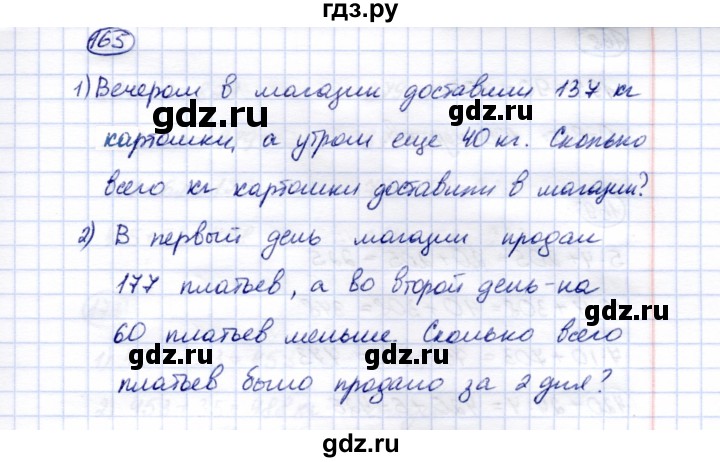 гдз.ру
165
1) Вечером в магазин доставили 137 кг
gdz.ru gdz.ru
картошки, а утром еще 40 кг. Сколько
всего кг картошки доставили в магазин?
gdz.ru
2) В первый день магазин продал
177 платьев, а во второй день - на
gdz.ru gdz.ru
60 платьев меньше. Сколько всего
платьев было продано за 2 дня?
gdz.ru
gdz.ru